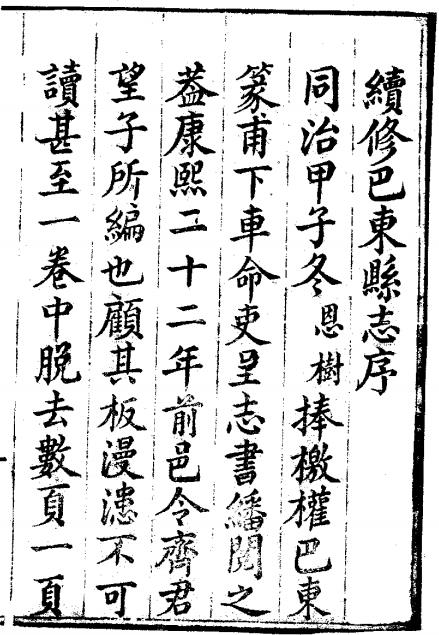 續修巴東縣志序
同治甲子冬恩樹捧檄權巴東
篆甫下車命吏呈志書繙閱之
葢康熙二十二年前邑令齊君
望子所編也顧其板漫漶不可
讀甚至一卷中脫去數頁一頁